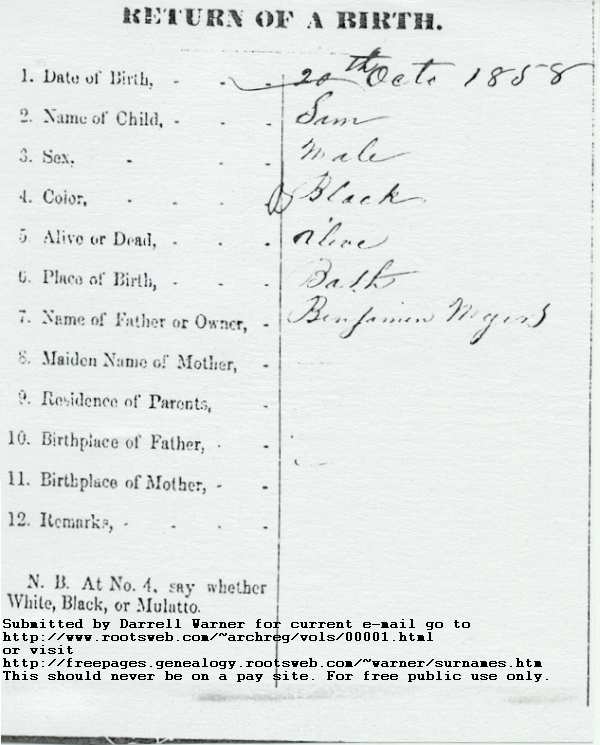 RETURN OF A BIRTH.
1. Date of Birth, - - - 20th Octo 1858
2. Name of Child, - - - Sam
3. Sex, - - - Male
4. Color, - - - Black
5. Alive or Dead, - - - Alive
6. Place of Birth, - - - Bath
7. Name of Father or Owner, - Benjamin Myers
8. Maiden Name of Mother, -
9. Residence of Parents, -
10. Birthplace of Father, - -
11. Birthplace of Mother, - -
12. Remarks, - - - -
N. B. At No. 4, say whether
White, Black, or Mulatto.
Submitted by Darrell Warner for current e-mail go to
http://www.rootsweb.com/~archreg/vols/00001.html
or visit
http://freepages.genealogy.rootsweb.com/~warner/surnames.htm
This should never be on a pay site. For free public use only.